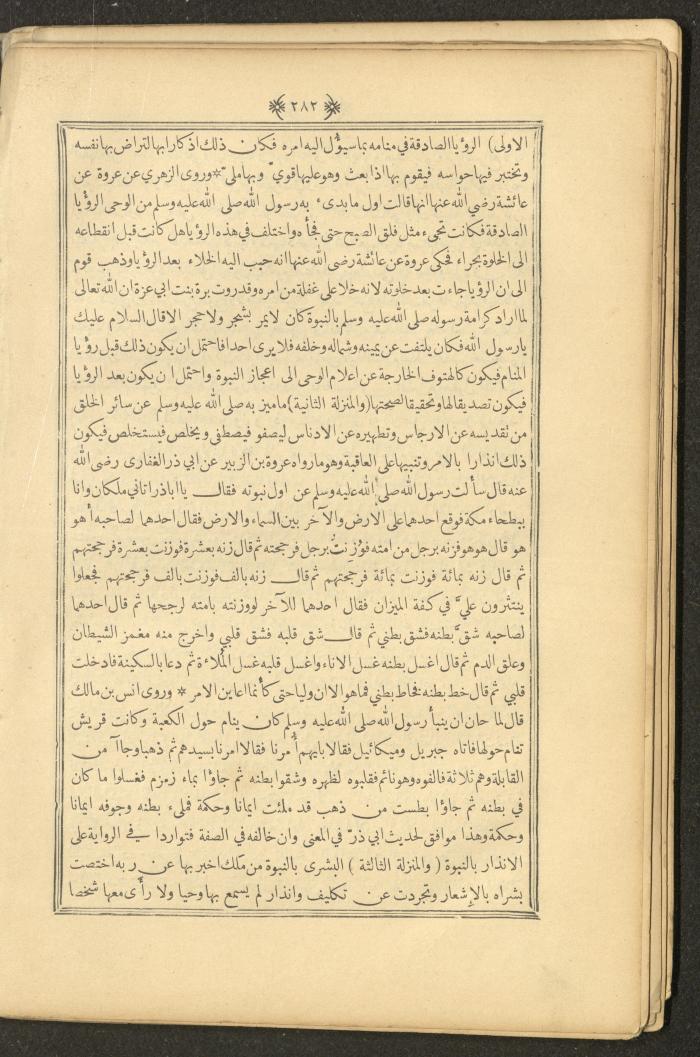 ٢٨٢
الاولى) الرؤيا الصادقة في منامه بما سيؤل اليه امره فكان ذلك اذكارا بها لتراض بها نفسه
وتختبر فيها حواسه فيقوم بها اذا بعث وهو عليها قويّ وبها ملىّ * وروى الزهري عن عروة عن
عائشة رضي الله عنها انها قالت اول ما بدىء به رسول الله صلى الله عليه وسلم من الوحى الرؤيا
الصادقة فكانت تجىء مثل فلق الصبح حتى فجأه واختلف في هذه الرؤيا هل كانت قبل انقطاعه
الى الخلوة بحراء فحكى عروة عن عائشة رضى الله عنها انه حبب اليه الخلاء بعد الرؤيا وذهب قوم
الى ان الرؤيا جاءت بعد خلوته لانه خلا على غفلة من امره وقد روت برة بنت ابي عزة ان الله تعالى
لما اراد كرامة رسوله صلى الله عليه وسلم بالنبوة كان لا يمر بشجر ولا حجر الا قال السلام عليك
يا رسول الله فكان يلتفت عن يمينه وشماله وخلفه فلا يرى احدا فاحتمل ان يكون ذلك قبل رؤيا
المنام فيكون كالهتوف الخارجة عن اعلام الوحى الى اعجاز النبوة واحتمل ان يكون بعد الرؤيا
فيكون تصديقا لها وتحقيقا لصحتها (والمنزلة الثانية) ما ميز به صلى الله عليه وسلم عن سائر الخلق
من تقديسه عن الارجاس وتطهيره عن الادناس ليصفو فيصطفى ويخلص فيستخلص فيكون
ذلك انذارا بالامر وتنبيها على العاقبة وهو ما رواه عروة بن الزبير عن ابي ذر الغفارى رضى الله
عنه قال سألت رسول الله صلى الله عليه وسلم عن اول نبوته فقال يا اباذر اتاني ملكان وانا
ببطحاء مكة فوقع احدهما على الارض والآخر بين السماء والارض فقال احدهما لصاحبه أهو
هو قال هو هو فزنه برجل من امته فوُزِنتُ برجل فرجحته ثم قال زنه بعشرة فوزنت بعشرة فرجحتهم
ثم قال زنه بمائة فوزنت بمائة فرجحتهم ثم قال زنه بالف فوزنت بالف فرجحتهم فجعلوا
ينتثرون عليَّ في كفة الميزان فقال احدهما للآخر لو وزنته بامته لرجحها ثم قال احدهما
لصاحبه شقَّ بطنه فشق بطني ثم قال شق قلبه فشق قلبي واخرج منه مغمز الشيطان
وعلق الدم ثم قال اغسل بطنه غسل الاناء واغسل قلبه غسل المُلاءة ثم دعا بالسكينة فادخلت
قلبي ثم قال خط بطنه فخاط بطني فما هو الا ان وليا حتى كأنما اعاين الامر * وروى انس بن مالك
قال لما حان ان ينبأ رسول الله صلى الله عليه وسلم كان ينام حول الكعبة وكانت قريش
تنام حولها فاتاه جبريل وميكائيل فقالا بايهم أمرنا فقالا امرنا بسيدهم ثم ذهبا وجاآ من
القابلة وهم ثلاثة فالفوه وهو نائم فقلبوه لظهره وشقوا بطنه ثم جاؤا بماء زمزم فغسلوا ما كان
في بطنه ثم جاؤا بطست من ذهب قد ملئت ايمانا وحكمة فملىء بطنه وجوفه ايمانا
وحكمة وهذا موافق لحديث ابي ذرّ في المعنى وان خالفه في الصفة فتواردا في الرواية على
الانذار بالنبوة (والمنزلة الثالثة) البشرى بالنبوة من ملك اخبر بها عن ربه اختصت
بشراه بالإشعار وتجردت عن تكليف وانذار لم يسمع بها وحيا ولا رأى معها شخصا